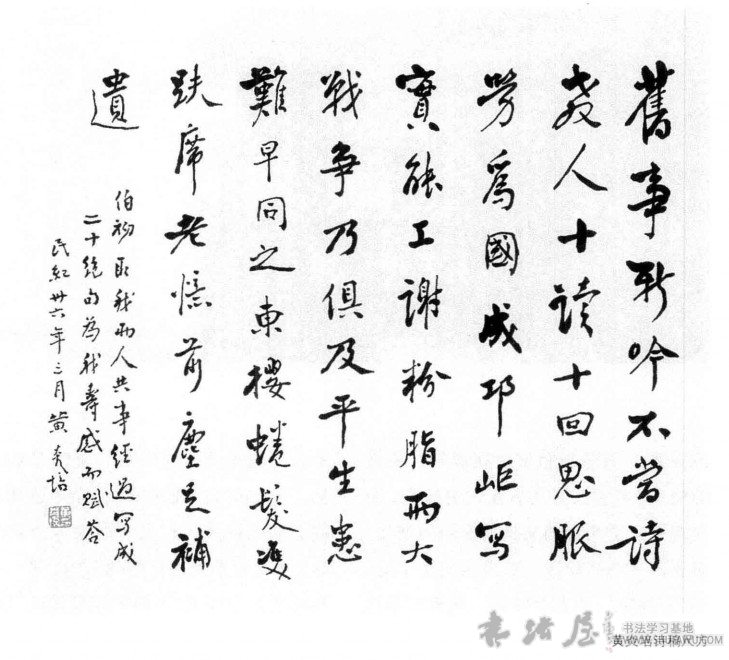 舊事新吟不啻詩
教人十讀十回思服
勞爲國成邛岠寫
實能工謝粉脂兩大
戦争乃俱及平生患
難早同之東櫻蜷髮雙
趺席老憶前塵足補
遺
伯初取我兩人共事經過写成
二十絕句為我壽感而賦答
民紀卅六年三月黄炎培
书法屋
书法学习基地